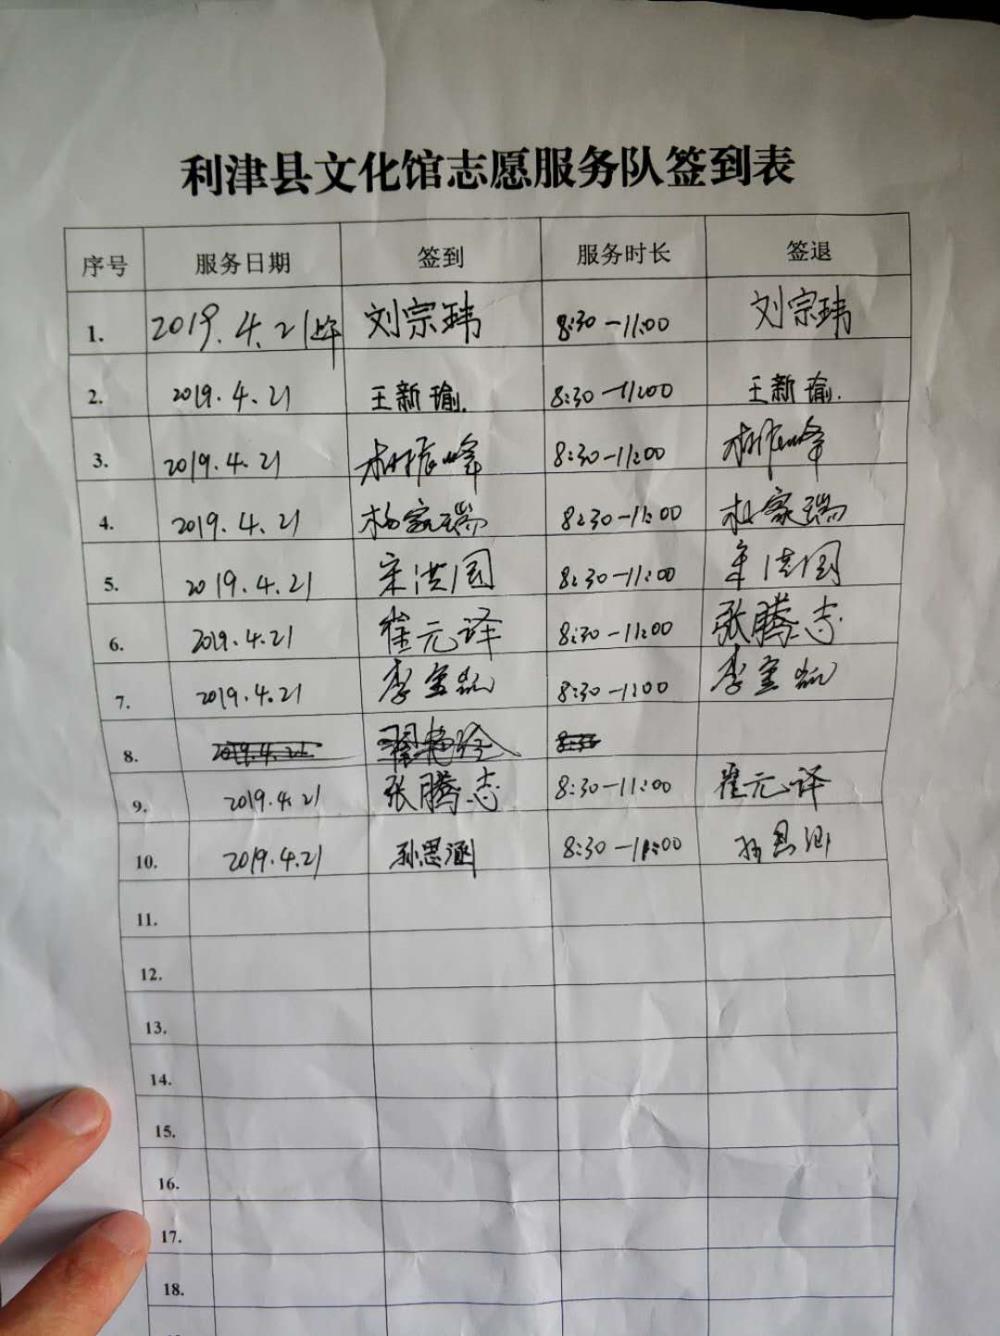 利津县文化馆志愿服务队签到表
序号 服务日期 签到 服务时长 签退
1. 2019.4.21上午 刘宗玮 8:30-11:00 刘宗玮
2. 2019.4.21 王新瑜. 8:30-11:00 王新瑜.
3. 2019.4.21 峰 8:30-11:00 峰
4. 2019.4.21 杨家瑞 8:30-11:00 杨家瑞
5. 2019.4.21 宋洪国 8:30-11:00 宋洪国
6. 2019.4.21 崔元译 8:30-11:00 张腾志
7. 2019.4.21 李 8:30-11:00 李
8.
9. 2019.4.21 张腾志 8:30-11:00 崔元译
10. 2019.4.21 孙思涵 8:30-11:00 孙思涵
11.
12.
13.
14.
15.
16.
17.
18.